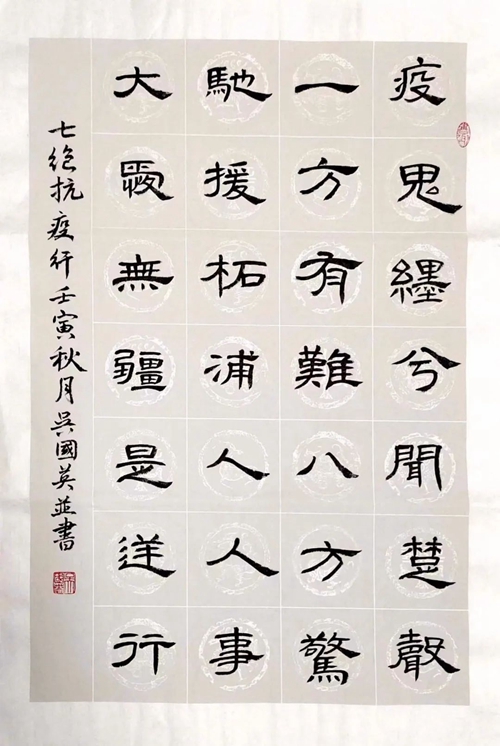 疫鬼纏兮聞楚聲
一方有難八方驚
馳援柘浦人人事
大愛無疆是逆行
七絕抗疫行壬寅秋月吳國英並書